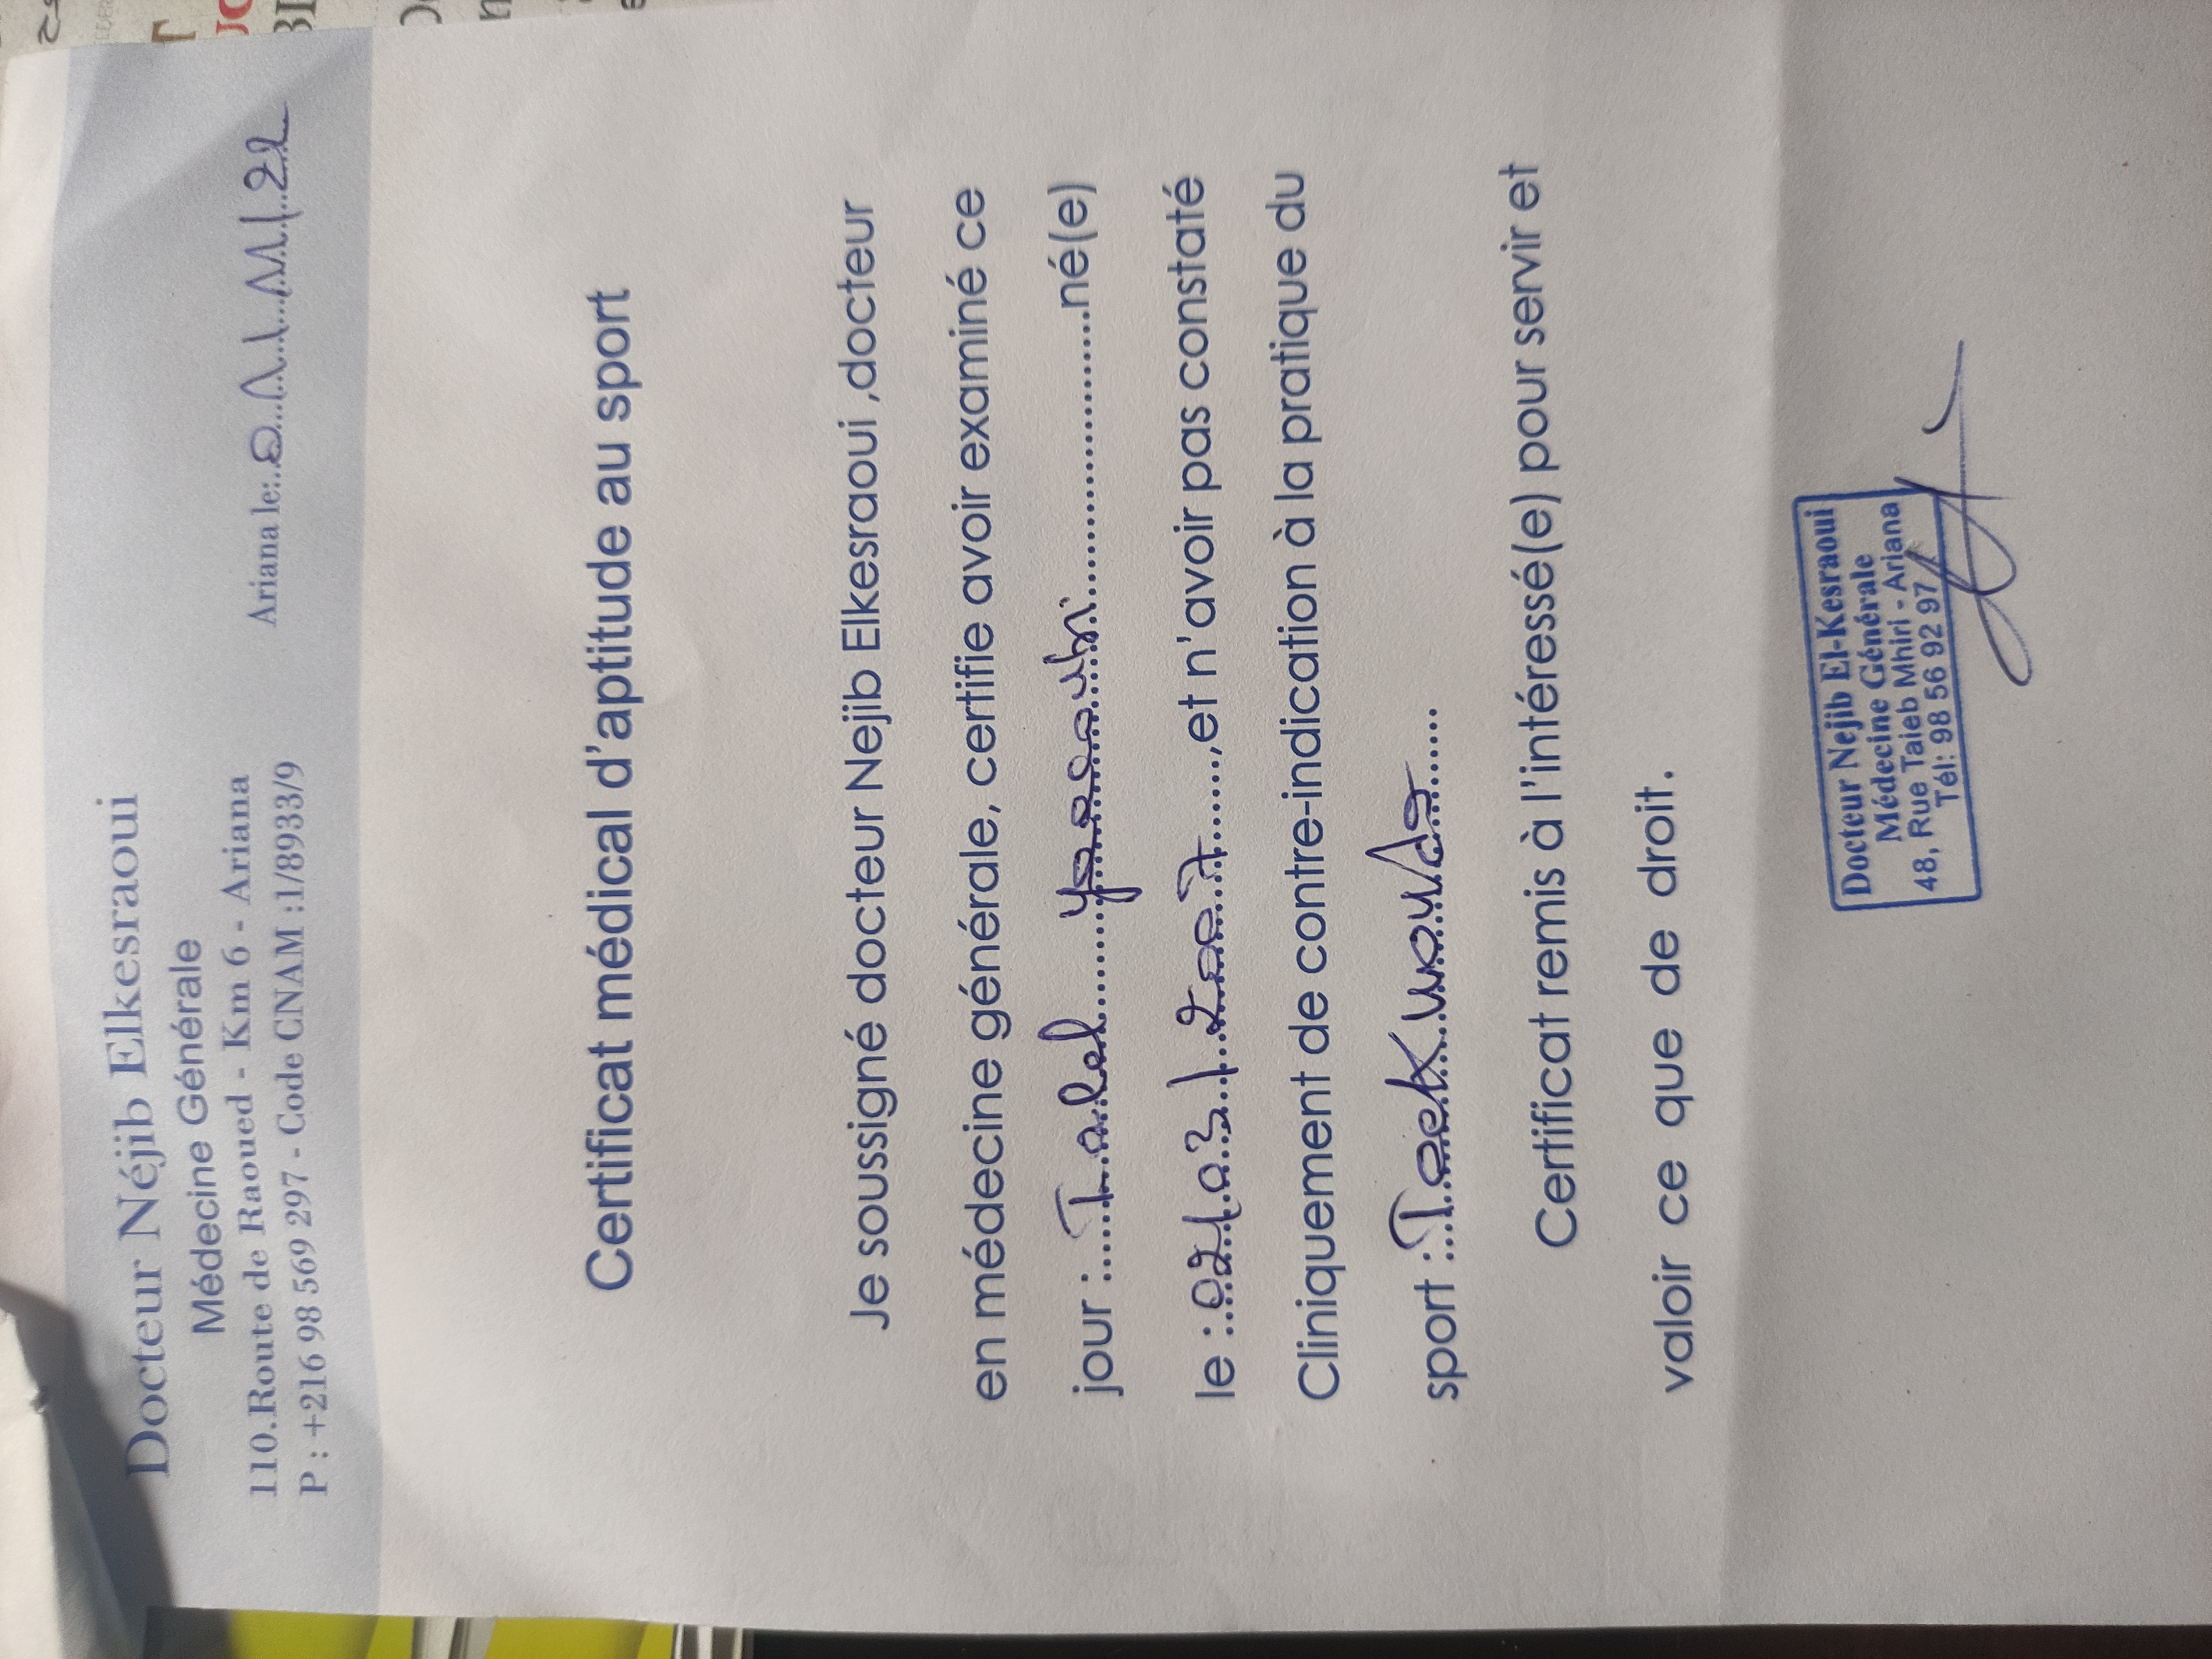 Docteur Néjib Elkesraoui
Médecine Générale
110.Route de Raoued - Km 6 - Ariana
P : +216 98 569 297 - Code CNAM :1/8933/9
Ariana le:
Certificat médical d'aptitude au sport
Je soussigné docteur Nejib Elkesraoui ,docteur
en médecine générale, certifie avoir examiné ce
jour :......Talel..........né(e)
le :..02/03/.......,et n'avoir pas constaté
Cliniquement de contre-indication à la pratique du
sport :..Taekwondo......
Certificat remis à l'intéressé(e) pour servir et
valoir ce que de droit.
Docteur Nejib El-Kesraoui
Médecine Générale
48, Rue Taieb Mhiri - Ariana
Tél: 98 56 92 97